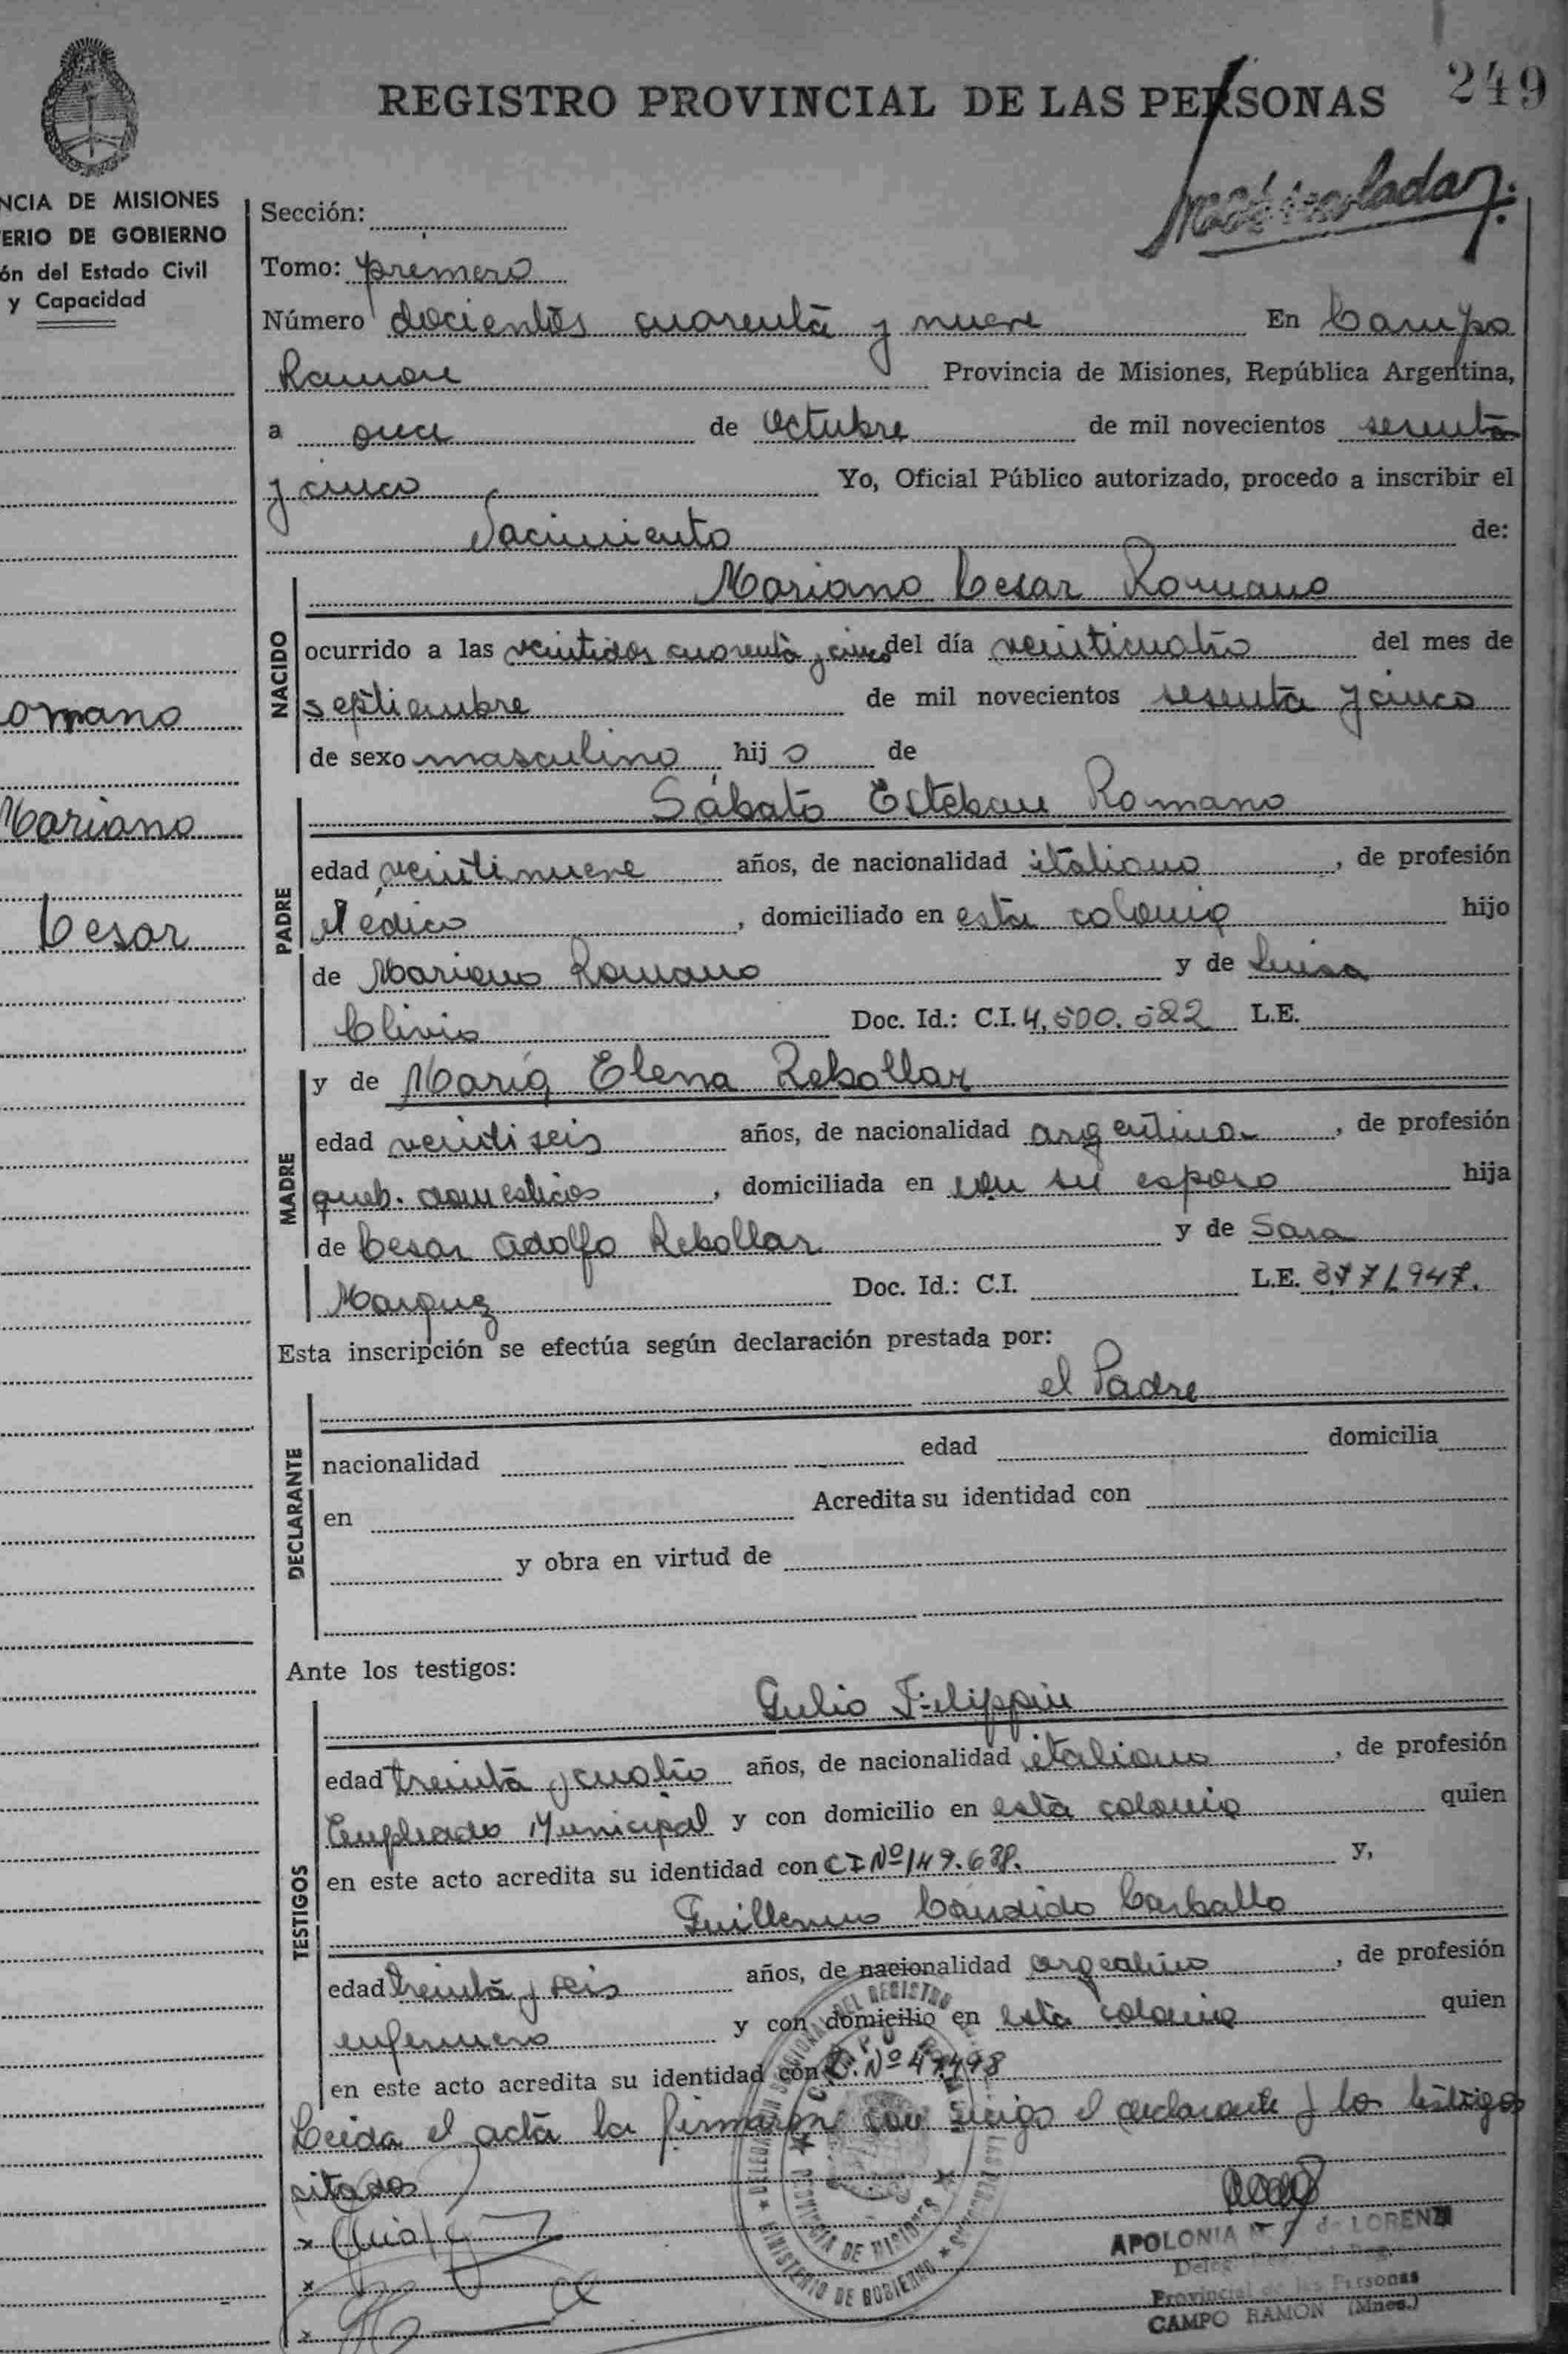 249
REGISTRO PROVINCIAL DE LAS PERSONAS
NCIA DE MISIONES
ERIO DE GOBIERNO
ón del Estado Civil
y Capacidad
omano
Mariano
Cesar
Sección:
Tomo: primero
Número docientos cuarenta y nueve En Campo
Ramon Provincia de Misiones, República Argentina,
a once de Octubre de mil novecientos sesenta
y cinco Yo, Oficial Público autorizado, procedo a inscribir el
Nacimiento de:
NACIDO
Mariano Cesar Romano
ocurrido a las veintidos cuarenta y cinco del día veinticuatro del mes de
septiembre de mil novecientos sesenta y cinco
de sexo masculino hijo de
PADRE
Sábato Esteban Romano
edad veintinueve años, de nacionalidad italiano, de profesión
Médico, domiciliado en esta colonia hijo
de Mariano Romano y de Luisa
Clivio Doc. Id.: C.I. 4.500.522 L.E.
MADRE
y de Maria Elena Rebollar
edad veintiseis años, de nacionalidad argentina, de profesión
queh. domesticos, domiciliada en con su esposo hija
de Cesar Adolfo Rebollar y de Sara
Marquez Doc. Id.: C.I. L.E. 3771947.
Esta inscripción se efectúa según declaración prestada por:
DECLARANTE
el Padre
nacionalidad edad domicilia
en Acredita su identidad con
y obra en virtud de
Ante los testigos:
TESTIGOS
Gulio Filippin
edad treinta y cuatro años, de nacionalidad italiano, de profesión
Empleado Municipal y con domicilio en esta colonia quien
en este acto acredita su identidad con CI Nº 149.638. y,
Guillermo Candido Carballo
edad treinta y seis años, de nacionalidad argentino, de profesión
enfermero y con domicilio en esta colonia quien
en este acto acredita su identidad con C. Nº 49498
Leida el acta la firmaron con migo el declarante y los testigos
citados
APOLONIA de LORENZI
Provincial de las Personas
CAMPO RAMON (Mnes.)
PROVINCIA DE MISIONES
MINISTERIO DE GOBIERNO